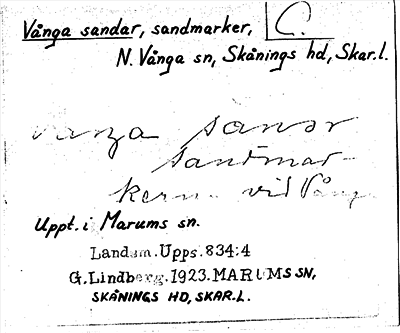 Vånga sandar, sandmarker, C.
N. Vånga sn, Skånings hd, Skar.l.
vånga sandar
sandmar-
kern. vid Vång
Uppt. i Marums sn.
Landsm. Upps. 834:4
G. Lindberg. 1923. MARUMS SN,
SKÅNINGS HD, SKAR.L.